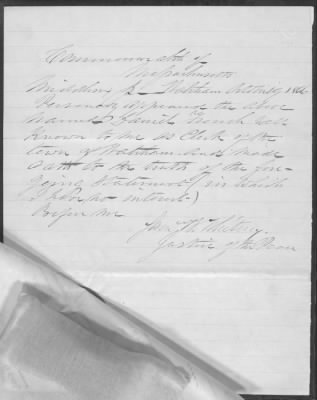 Commonwealth of
Massachusetts
Middlesex ss. Waltham October 9, 186
Personally appeared the above
named Daniel French well
known to me as Clerk of the
town of Waltham and made
oath to the truth of the fore-
going statement (in which
I have no interest)
before me
Whitney
Justice of the Peace